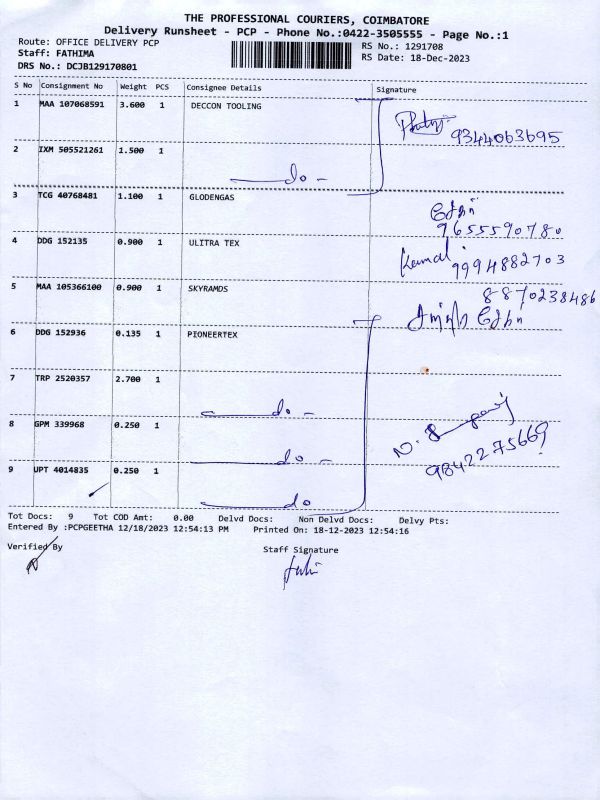 THE PROFESSIONAL COURIERS, COIMBATORE
Delivery Runsheet - PCP - Phone No.:0422-3505555 - Page No.:1
Route: OFFICE DELIVERY PCP
Staff: FATHIMA
DRS No.: DCJB129170801
RS No.: 1291708
RS Date: 18-Dec-2023
S No Consignment No Weight PCS Consignee Details Signature
1 MAA 107068591 3.600 1 DECCON TOOLING
9344063695
2 IXM 505521261 1.500 1
do
3 TCG 40768481 1.100 1 GLODENGAS
9655590780
4 DDG 152135 0.900 1 ULITRA TEX
Kamal 9994882703
5 MAA 105366100 0.900 1 SKYRAMDS
8870238486
6 DDG 152936 0.135 1 PIONEERTEX
7 TRP 2520357 2.700 1
do
8 GPM 339968 0.250 1
do
9842275669
9 UPT 4014835 0.250 1
do
Tot Docs: 9 Tot COD Amt: 0.00 Delvd Docs: Non Delvd Docs: Delvy Pts:
Entered By :PCPGEETHA 12/18/2023 12:54:13 PM Printed On: 18-12-2023 12:54:16
Verified By Staff Signature